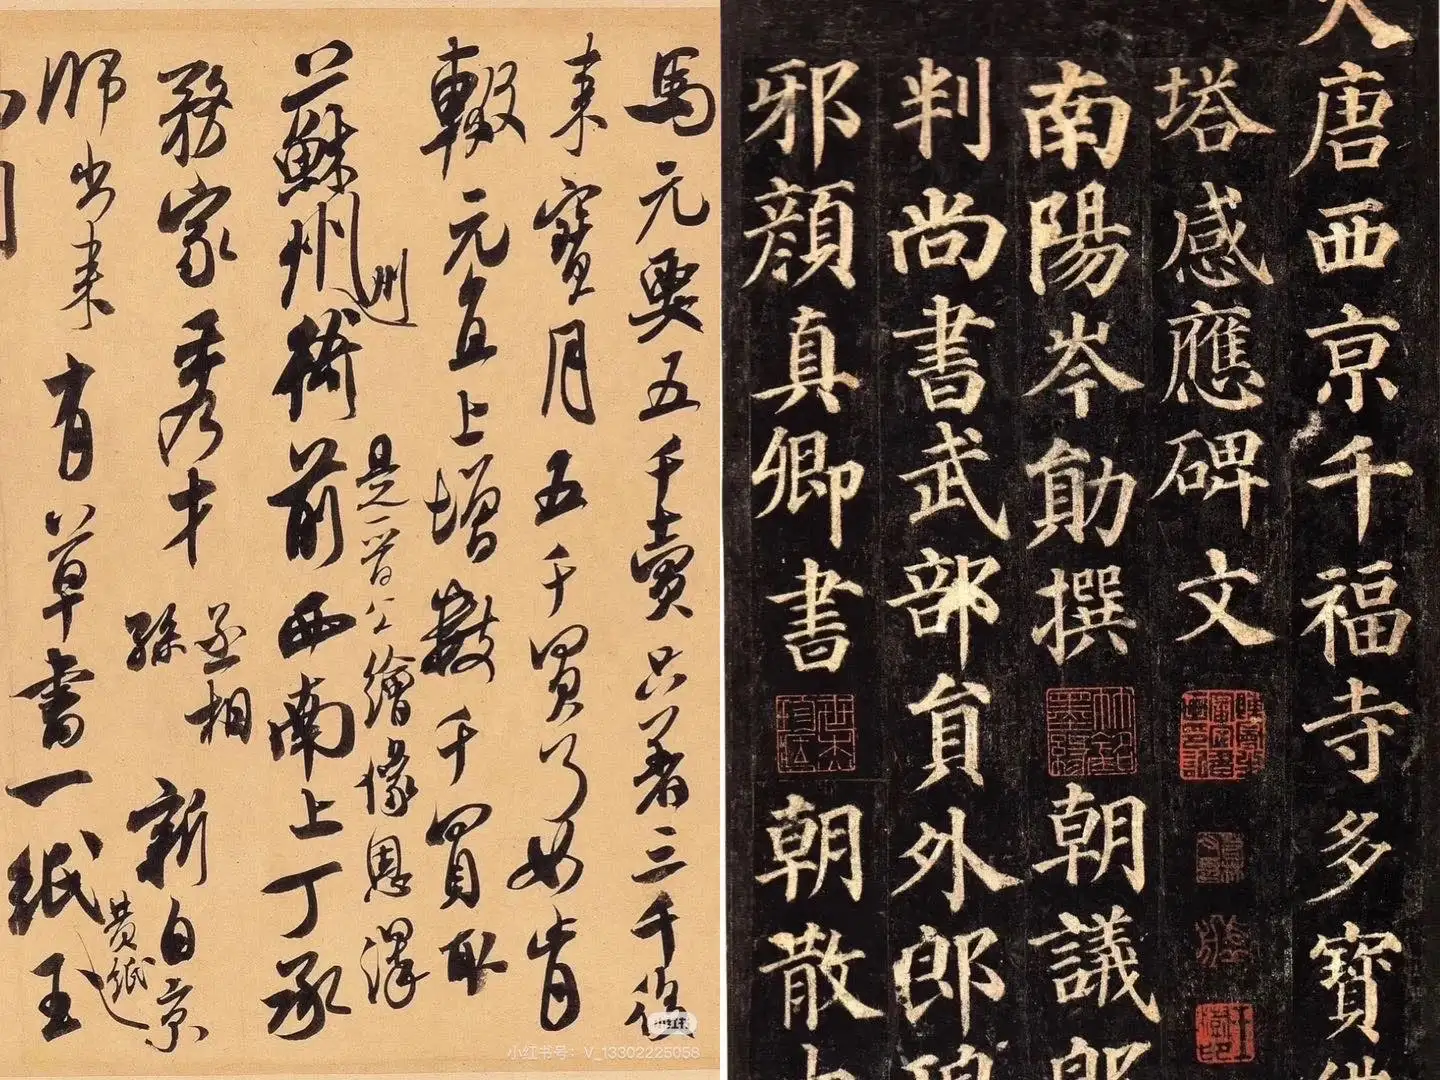 馬元要五千賣只著三千後
來寶月五千買了如肯
輟元直上增數千買取
是一晉人繪像恩澤
上蘇州衙前西南上丁承
州
務家秀才丞相孫新自京
黃紙
師出來有草書一紙王
小红书
小红书号：V_13302225058
大唐西京千福寺多寶
塔感應碑文
南陽岑勛撰朝議郎
判尚書武部員外郎琅
邪顏真卿書朝散大